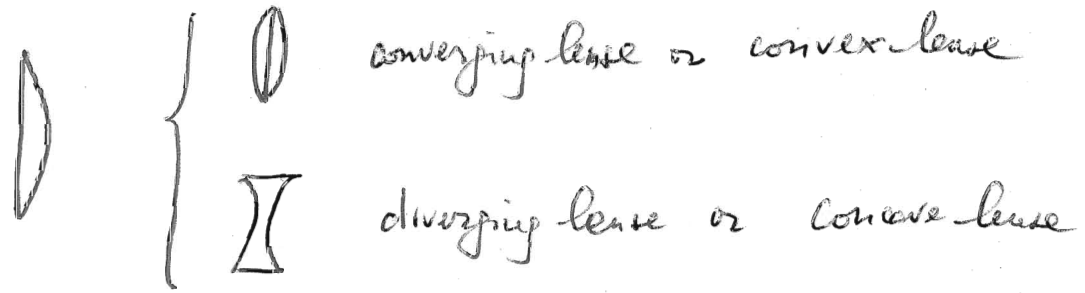 converging lense or convex lense
diverging lense or concave lense